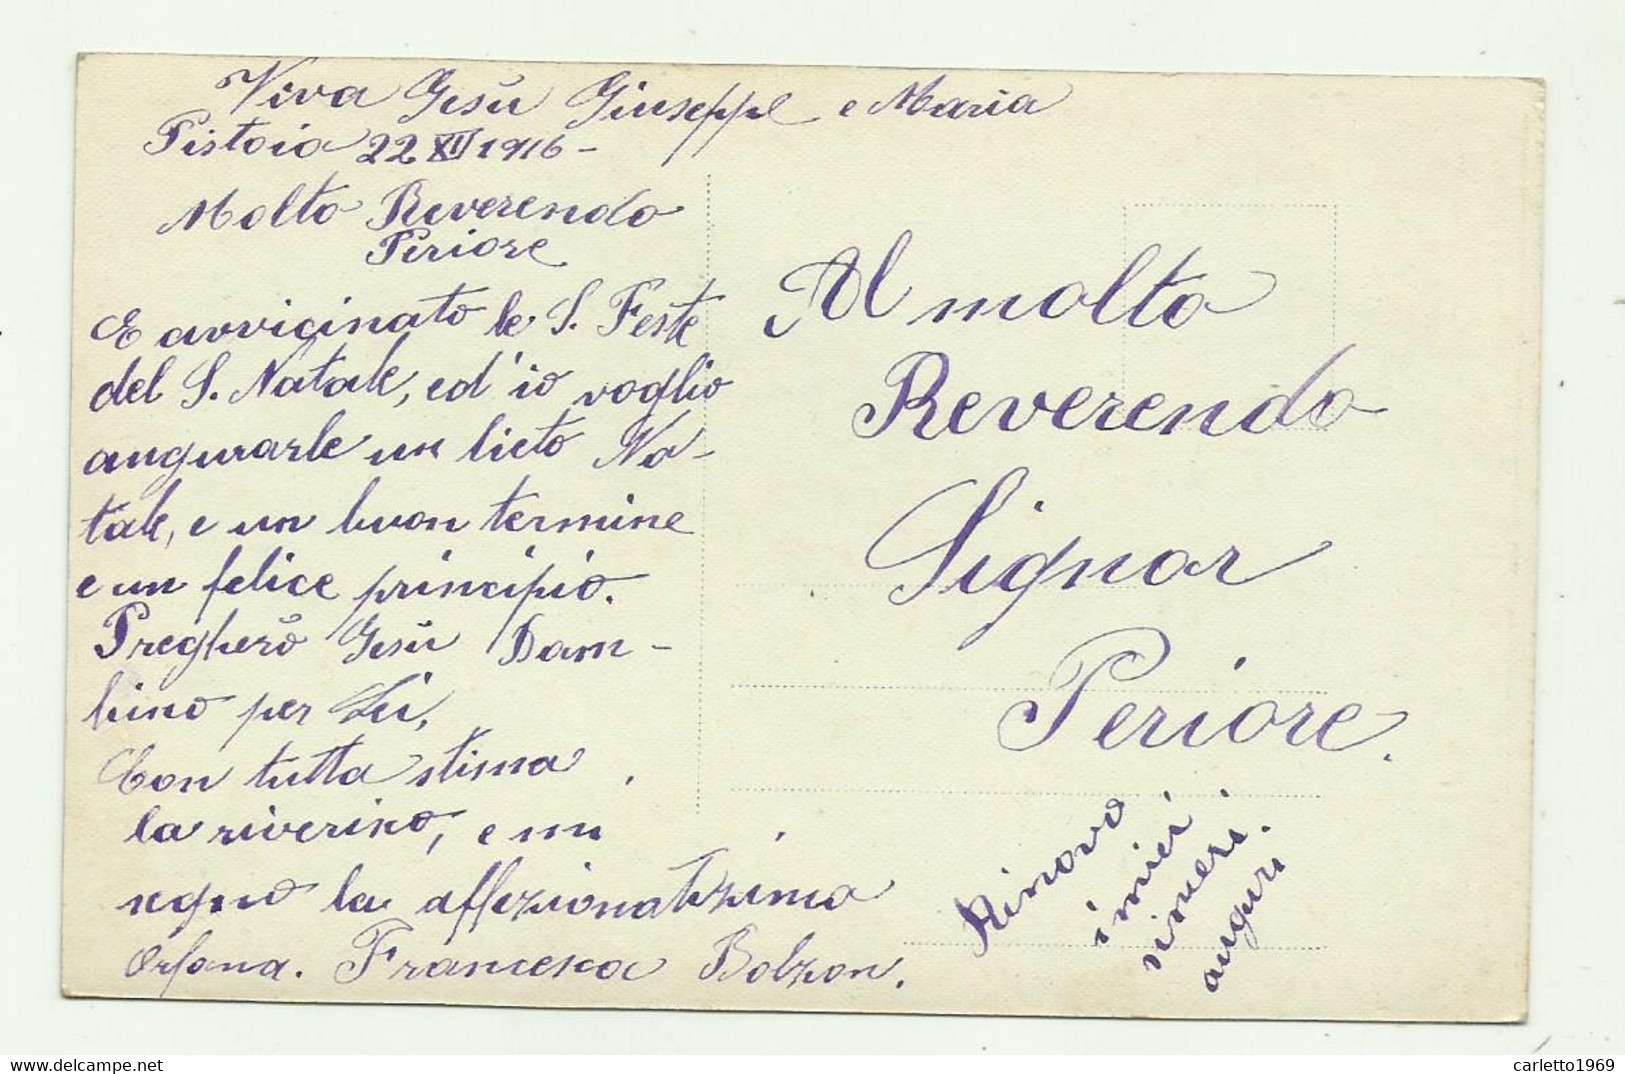 Viva Gesù Giuseppe e Maria
Pistoia 22 XII 1916 -
Molto Reverendo
Periore
E avvicinato le S. Feste
del S. Natale, ed'io voglio
augurarle un lieto Na-
tale, e un buon termine
e un felice principio.
Pregherò Gesù Bam-
bino per Lei,
Con tutta stima
la riverisco, e mi
segno la affezionatissima
Orfana. Francesca Bolzon.
Al molto
Reverendo
Signor
Periore.
Rinovo
i miei
sinceri
auguri.
carletto1969